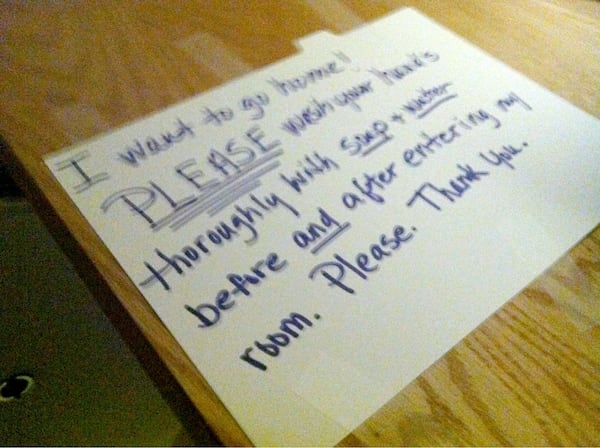 I want to go home!
PLEASE wash your hands
thoroughly with soap + water
before and after entering my
room. Please. Thank you.